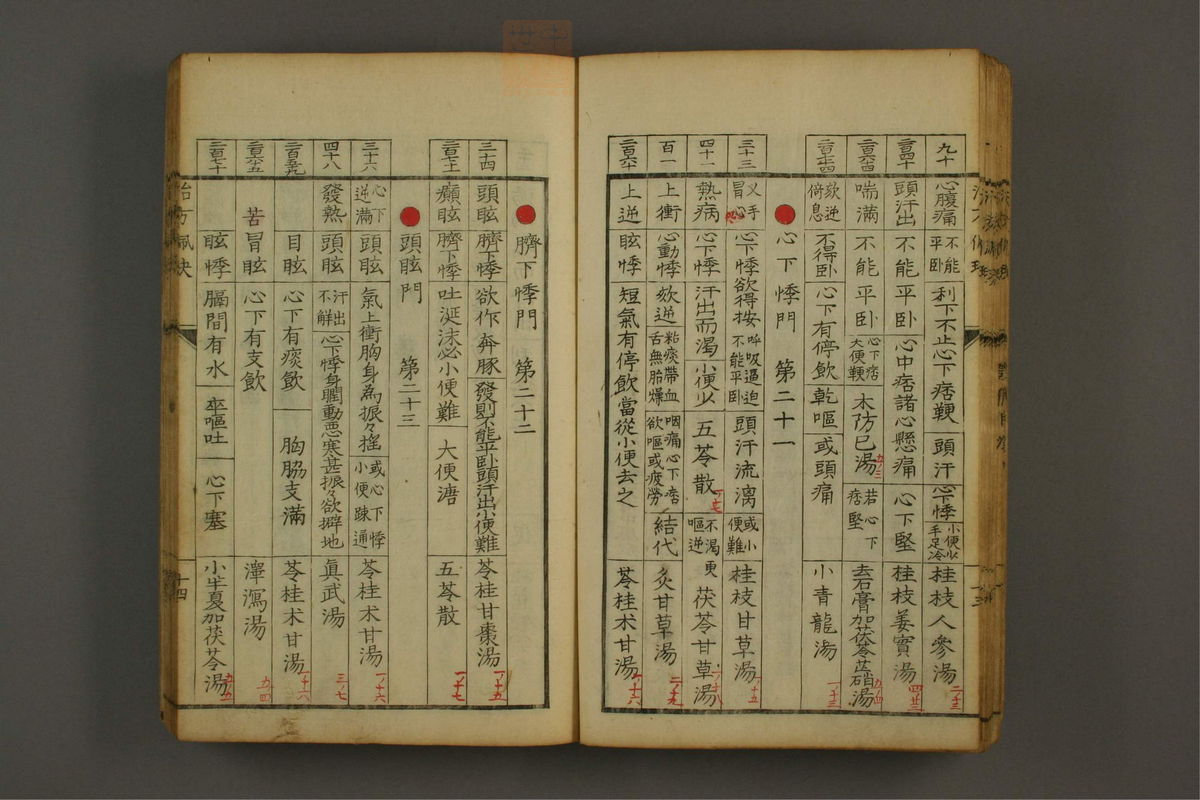 九十 心腹痛 不能平卧 利下不止心下痞鞕 頭汗 心下悸 小便少手足冷 桂枝人參湯
頭汗出 不能平卧 心中痞諸心懸痛 心下堅 桂枝姜實湯
喘滿 不能平卧 心下痞大便鞕 木防已湯 若心下痞堅 去石膏加茯苓芒硝湯
欬逆倚息 不得卧 心下有停飲 乾嘔或頭痛 小青龍湯
心下悸門 第二十一
三十三 叉手冒心 心下悸欲得按 呼吸逼迫不能平卧 頭汗流漓 或小便難 桂枝甘草湯
四十一 熱病 心下悸 汗出而渴 小便少 五苓散 不渴嘔逆 更 茯苓甘草湯
百一 上衝 心動悸 欬逆 粘痰帶血舌無胎燥 咽痛心下痞欲嘔或疲勞 結代 炙甘草湯
上逆 眩悸 短氣有停飲當從小便去之 苓桂朮甘湯
臍下悸門 第二十二
三十四 頭眩 臍下悸 欲作奔豚 發則不能平卧頭汗出小便難 苓桂甘棗湯
癲眩 臍下悸 吐涎沫必小便難 大便溏 五苓散
頭眩門 第二十三
三十六 心下逆滿 頭眩 氣上衝胸身為振々搖 或心下悸小便踈通 苓桂朮甘湯
四十八 發熱 頭眩 汗出不解 心下悸身瞤動惡寒甚振々欲擗地 眞武湯
目眩 心下有痰飲 胸脇支滿 苓桂朮甘湯
苦冒眩 心下有支飲 澤瀉湯
眩悸 膈間有水 卒嘔吐 心下塞 小半夏加茯苓湯
十四